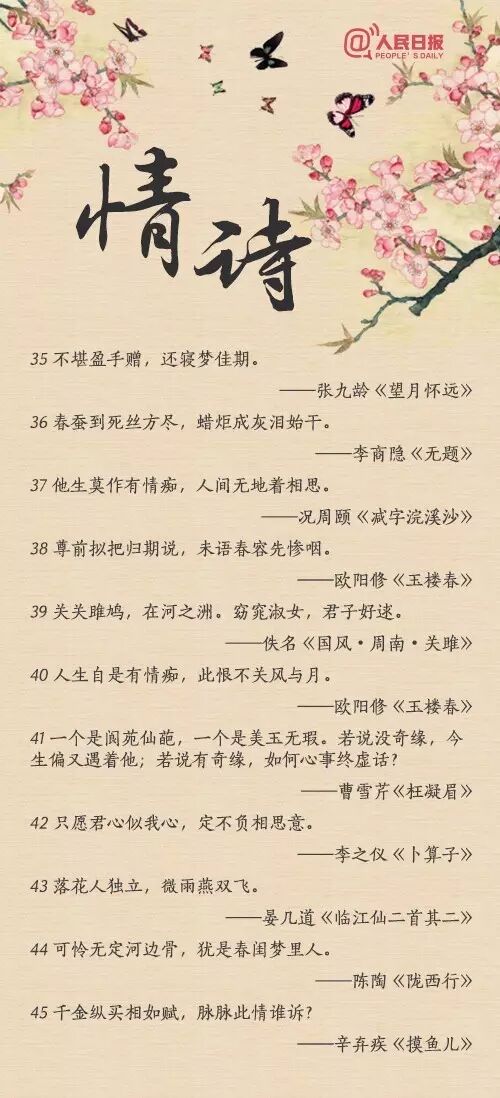 人民日报
PEOPLE'S DAILY
情诗
35 不堪盈手赠，还寝梦佳期。
——张九龄《望月怀远》
36 春蚕到死丝方尽，蜡炬成灰泪始干。
——李商隐《无题》
37 他生莫作有情痴，人间无地着相思。
——况周颐《减字浣溪沙》
38 尊前拟把归期说，未语春容先惨咽。
——欧阳修《玉楼春》
39 关关雎鸠，在河之洲。窈窕淑女，君子好逑。
——佚名《国风·周南·关雎》
40 人生自是有情痴，此恨不关风与月。
——欧阳修《玉楼春》
41 一个是阆苑仙葩，一个是美玉无瑕。若说没奇缘，今
生偏又遇着他；若说有奇缘，如何心事终虚话？
——曹雪芹《枉凝眉》
42 只愿君心似我心，定不负相思意。
——李之仪《卜算子》
43 落花人独立，微雨燕双飞。
——晏几道《临江仙二首其二》
44 可怜无定河边骨，犹是春闺梦里人。
——陈陶《陇西行》
45 千金纵买相如赋，脉脉此情谁诉？
——辛弃疾《摸鱼儿》